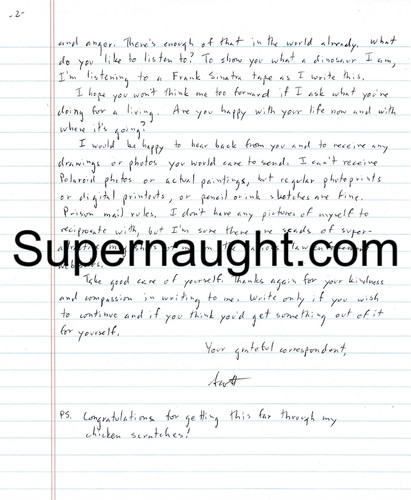 -2-
and anger. There's enough of that in the world already. What
do you like to listen to? To show you what a dinosaur I am,
I'm listening to a Frank Sinatra tape as I write this.
I hope you won't think me too forward if I ask what you're
doing for a living. Are you happy with your life now and with
where it's going?
I would be happy to hear back from you and to receive any
drawings or photos you would care to send. I can't receive
Polaroid photos or actual paintings, but regular photoprints
or digital printouts, or pencil or ink sketches are fine.
Prison mail rules. I don't have any pictures of myself to
reciprocate with, but I'm sure there are scads of super-
Supernaught.com
Take good care of yourself. Thanks again for your kindness
and compassion in writing to me. Write only if you wish
to continue and if you think you'd get something out of it
for yourself.
Your grateful correspondent,
PS. Congratulations for getting this far through my
chicken scratches!